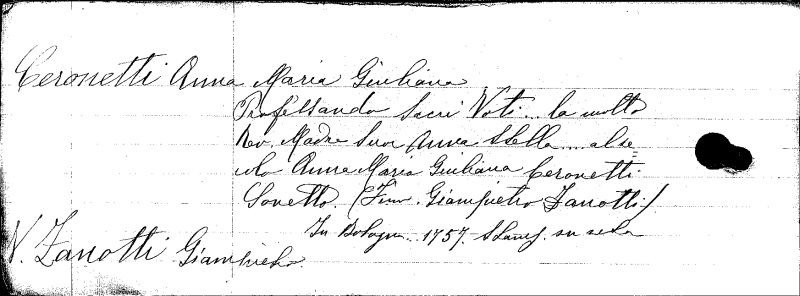 Ceronetti Anna Maria Giuliana
Professando Sacri Voti... la molto
Rev. Madre Suor Anna Stella.... al se=
colo Anna Maria Giuliana Ceronetti
Sonetto. (Firm. Giampietro Zanotti)
In Bologna.. 1757. Stamp. su seta
V. Zanotti Giampietro.